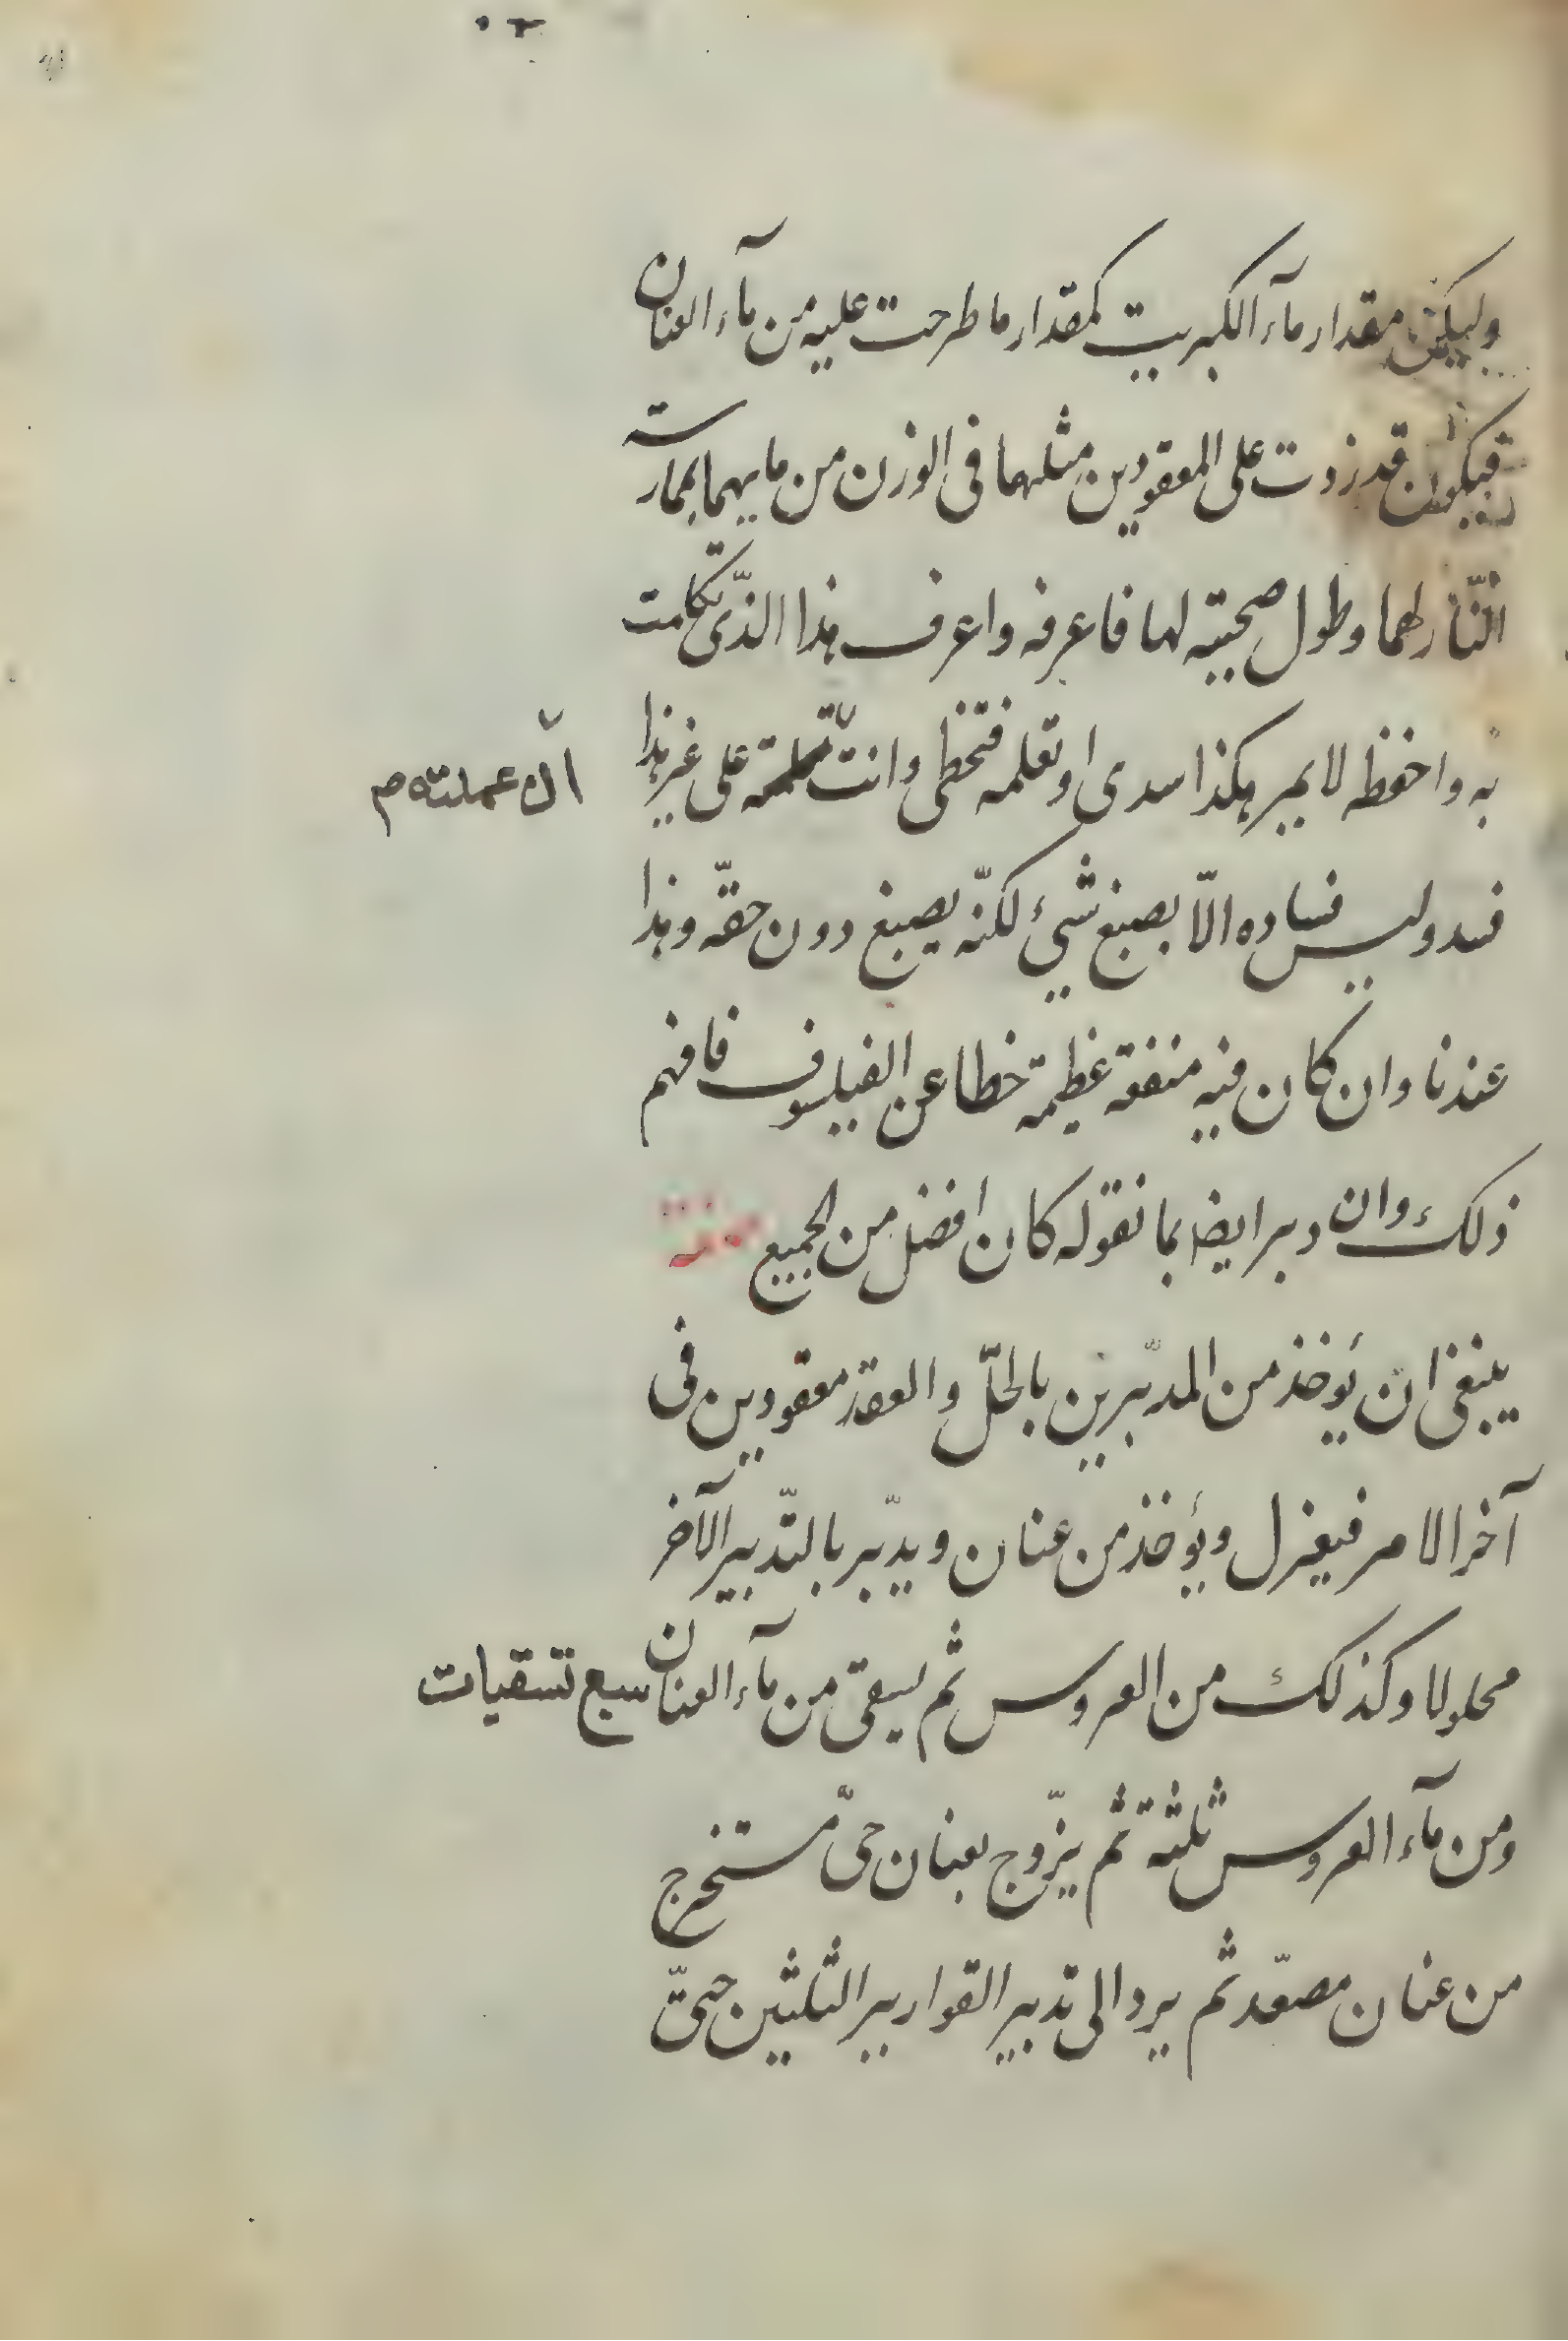 وليكن مقدار مآء الكبريت كمقدار ما طرحت عليه من مآء العنان
فيكون قد زدت على المعقودين مثلهما فى الوزن من مايهما بممارسة
النّار لهما وطول صحبته لهما فاعرفه واعرف هذا الذّى تكلمت
به واحفظه لا يمير هكذا سدى او تعلمه فتخطى وانت على غير هذا
ان عملته م
فسد وليس فساده الّا يصبغ شئ لكنّه يصبغ دون حقّه وهذا
عندنا وان كان فيه منفعة عظيمة خطا عن الفيلسوف فافهم
ذلك وان دبر ايضا بما نقوله كان افضل من الجميع
ينبغى ان يؤخذ من المدبّرين بالحلّ والعقد معقودين فى
آخر الامر فيعزل ويؤخذ من عنان ويدبّر بالتّدبير الآخر
محلولا وكذلك من العروس ثم يسقى من مآء العنان سبع تسقيات
ومن مآء العروس ثلثة ثم يزّوج بعنان حىّ مستخرج
من عنان مصعّد ثم يرد الى تدبير القوارير الثلثين حتىّ